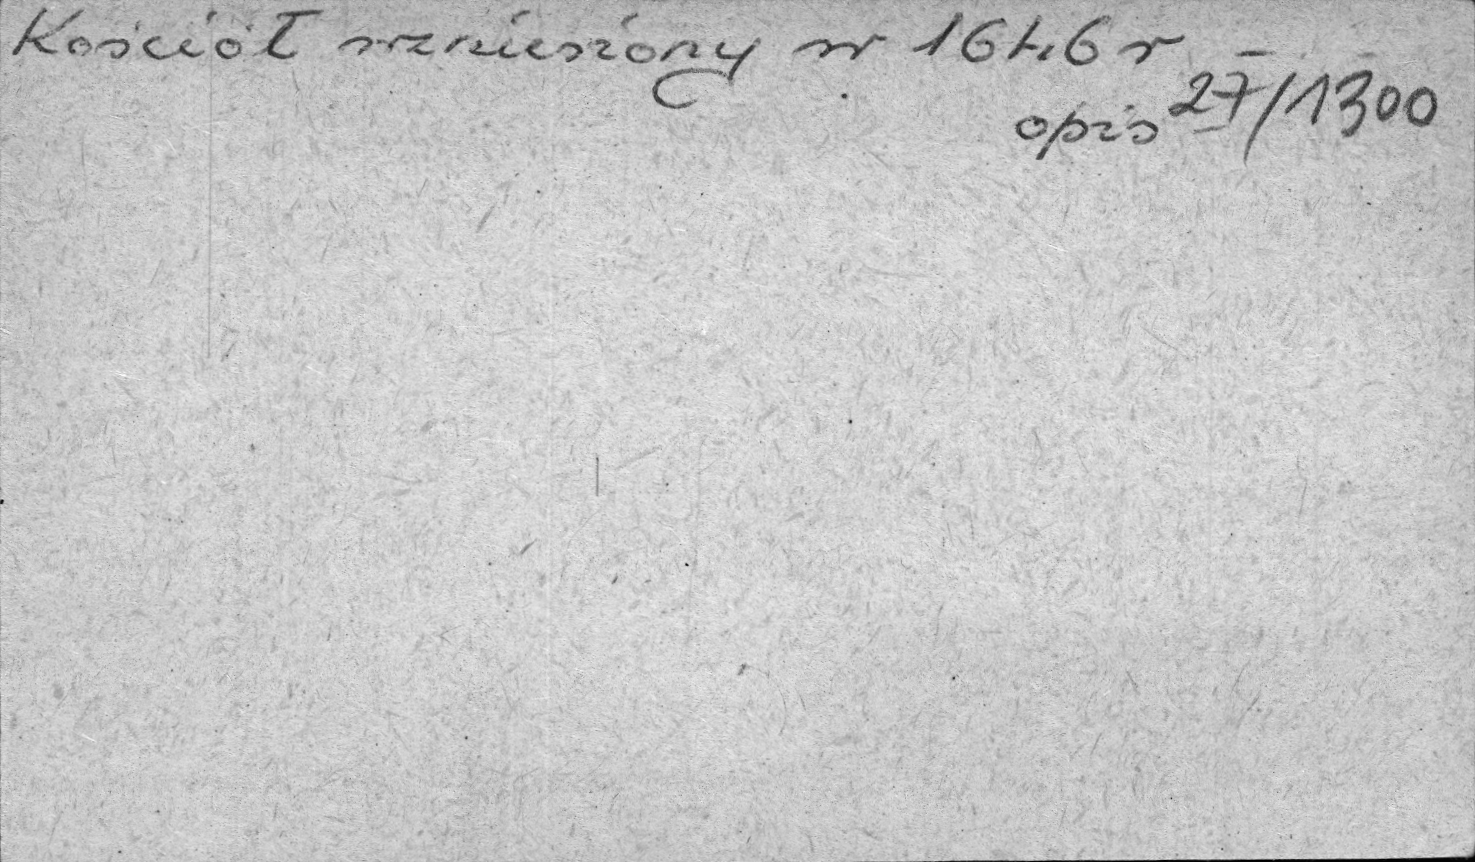 Kościół wzniesiony w 1646 r
opis 27/1300